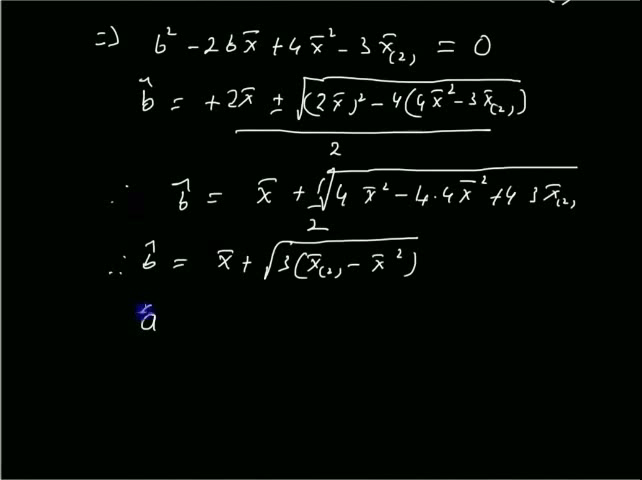 ⇒ b² - 2bx̄ + 4x̄² - 3x̄₍₂₎ = 0
b̂ = +2x̄ ± √((2x̄)² - 4(4x̄² - 3x̄₍₂₎)) / 2
∴ b̂ = x̄ + ½√(4x̄² - 4·4x̄² + 4 3x̄₍₂₎)
∴ b̂ = x̄ + √(3(x̄₍₂₎ - x̄²))
â